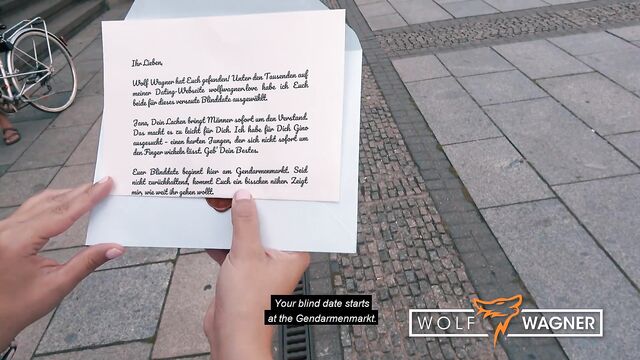 Ihr Lieben,
Wolf Wagner hat Euch gefunden! Unter den Tausenden auf
meiner Dating-Webseite wolfwagner.love habe ich Euch
beide für dieses versaute Blinddate ausgewählt.
Jana, Dein Lachen bringt Männer sofort um den Verstand.
Das macht es zu leicht für Dich. Ich habe für Dich Gino
ausgesucht - einen harten Jungen, der sich nicht sofort um
den Finger wickeln lässt. Geb' Dein Bestes.
Euer Blinddate beginnt hier am Gendarmenmarkt. Seid
nicht zurückhaltend, kommt Euch ein bisschen näher. Zeigt
mir, wie weit ihr gehen wollt.
Your blind date starts
at the Gendarmenmarkt.
WOLF WAGNER